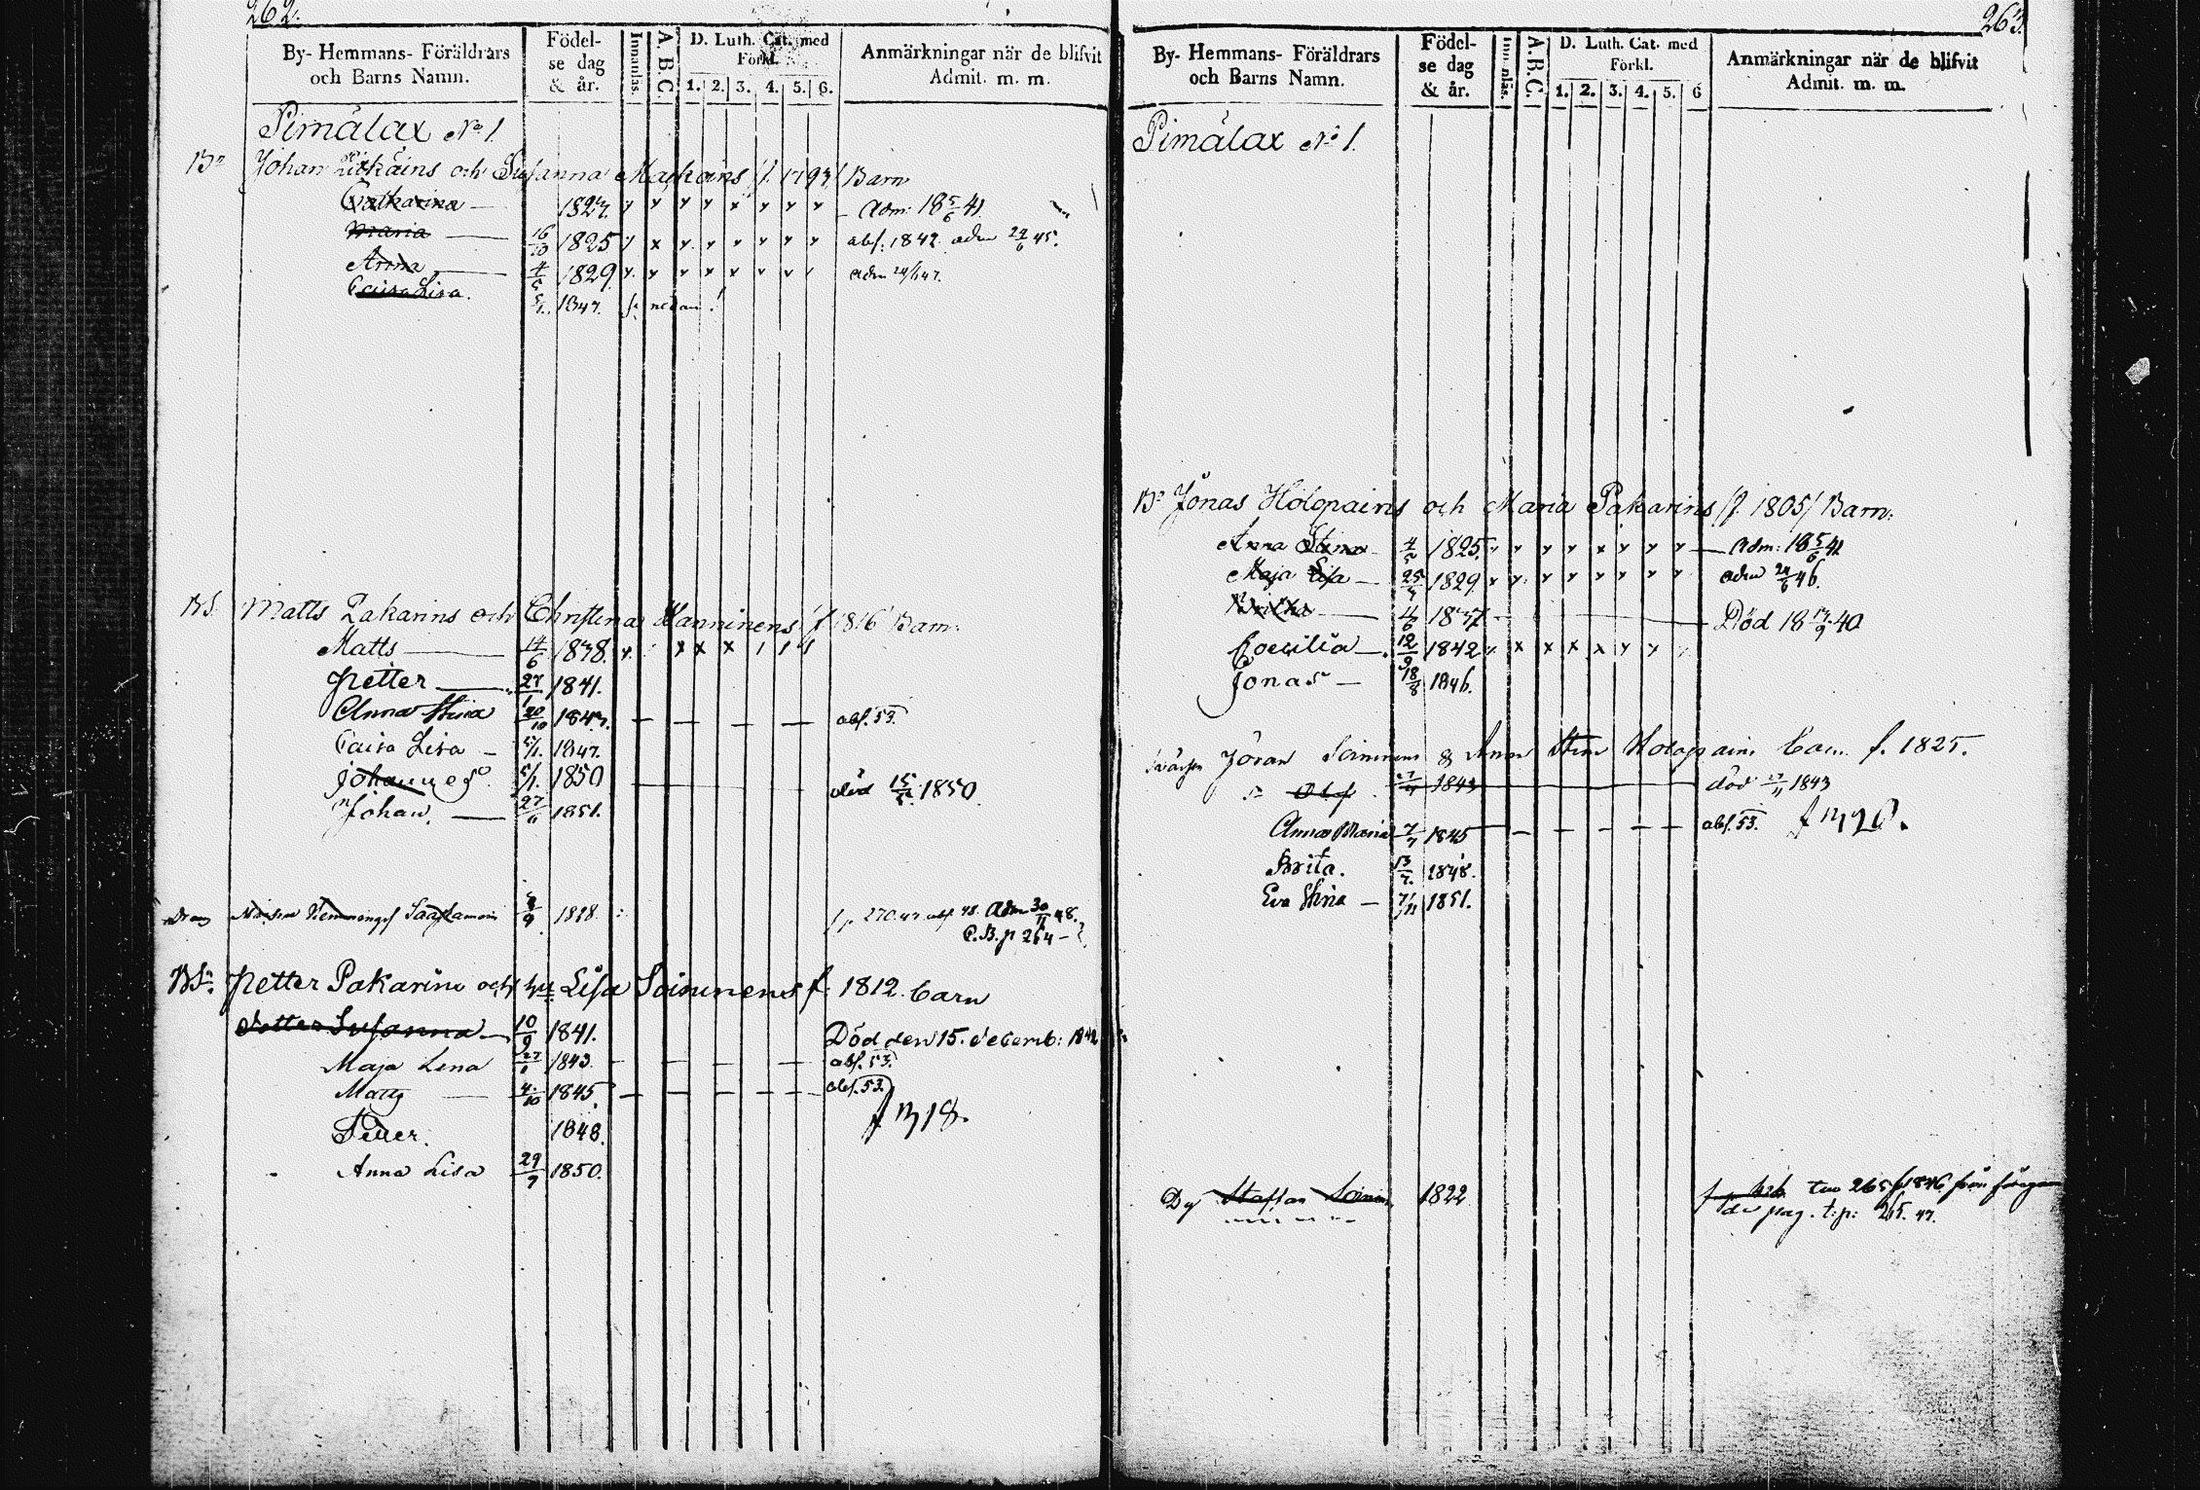 262.
By- Hemmans- Föräldrars och Barns Namn.
Födel- se dag & år.
Innanläs.
A. B. C.
D. Luth. Cat. med Förkl.
1. 2. 3. 4. 5. 6.
Anmärkningar när de blifvit Admit. m. m.
Pimälax No 1.
Johan och Susanna 1793/ Barn
Catharina — 1823. Adm: 18 5/6 41.
Maria — 16/10 1825 abs: 1842. adm 24/6 45.
Anna — 4/5 1829. adm 24/6 47.
Caisa Lisa. 5/1. 1847. se nedan!
BS. Matts Pakarins och Christina Hanninens /f. 1816/ Barn:
Matts — 14/6 1838.
Petter — 27/1 1841.
Anna Stina 20/10 1843. — — — — abs. 53.
Caisa Lisa — 5/1. 1847.
Johannes 5/1. 1850 — död 15/5 1850.
Johan. — 27/11 1851.
Hemmingsf 9 1828. p. 270.47. abs 48. Adm 30/11 48.
C.B. p 264 –
BSn. Petter Pakarin och hu Lisa Soininens f. 1812. barn
Susanna — 10/9 1841. Död den 15. decemb: 1842
Maja Lena 27/1 1843. — — — — abs. 53.
Matts — 4/10 1845. — — — — abs. 53.
f n 18.
Petter. 1848.
Anna Lisa 29/7 1850.
263.
By- Hemmans- Föräldrars och Barns Namn.
Födel- se dag & år.
Innanläs.
A. B. C.
D. Luth. Cat. med Förkl.
1. 2. 3. 4. 5. 6
Anmärkningar när de blifvit Admit. m. m.
Pimälax No 1.
Bd Jonas Holopains och Maria Pakarins /f. 1805/ Barn:
Anna Stina — 4/5 1825. — Adm: 18 5/6 41
Maja Lisa — 25/4 1829. adm 24/6 46.
4/6 1837 — Död 18 17/9 40
Coecilia — 12/9 1842
Jonas — 18/8 1846.
Svärson Jöran Soininens & Anna Stina Holopains barn. f. 1825.
Olof 27/4 1843 — död 17/11 1843
Anna Maria 7/7 1845 — — — — abs. 53. f n 20.
Brita. 13/7. 1848.
Eva Stina — 7/11 1851.
Dg Staffan Soinin 1822 265 1846 från föregående pag. t.p: 265. 47.